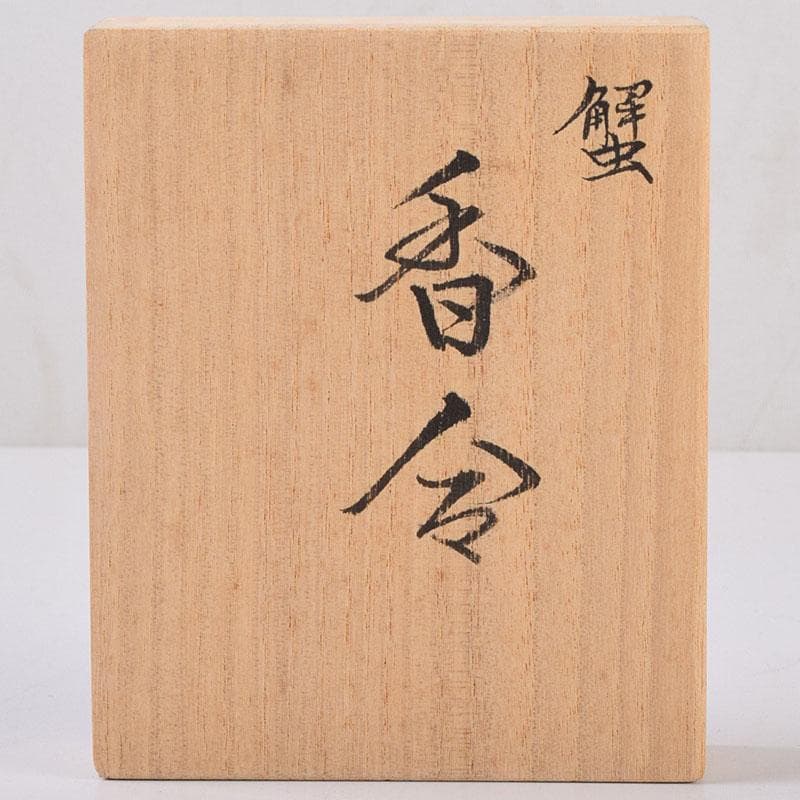 蟹
香合